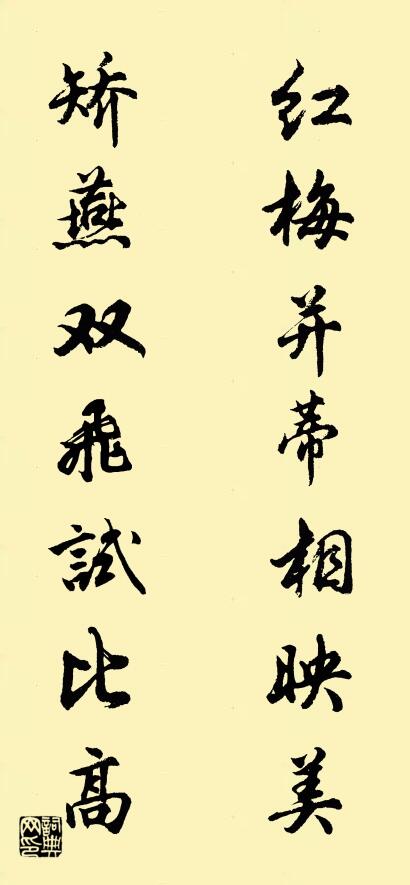 红梅并蒂相映美
矫燕双飞試比高
詞典网印